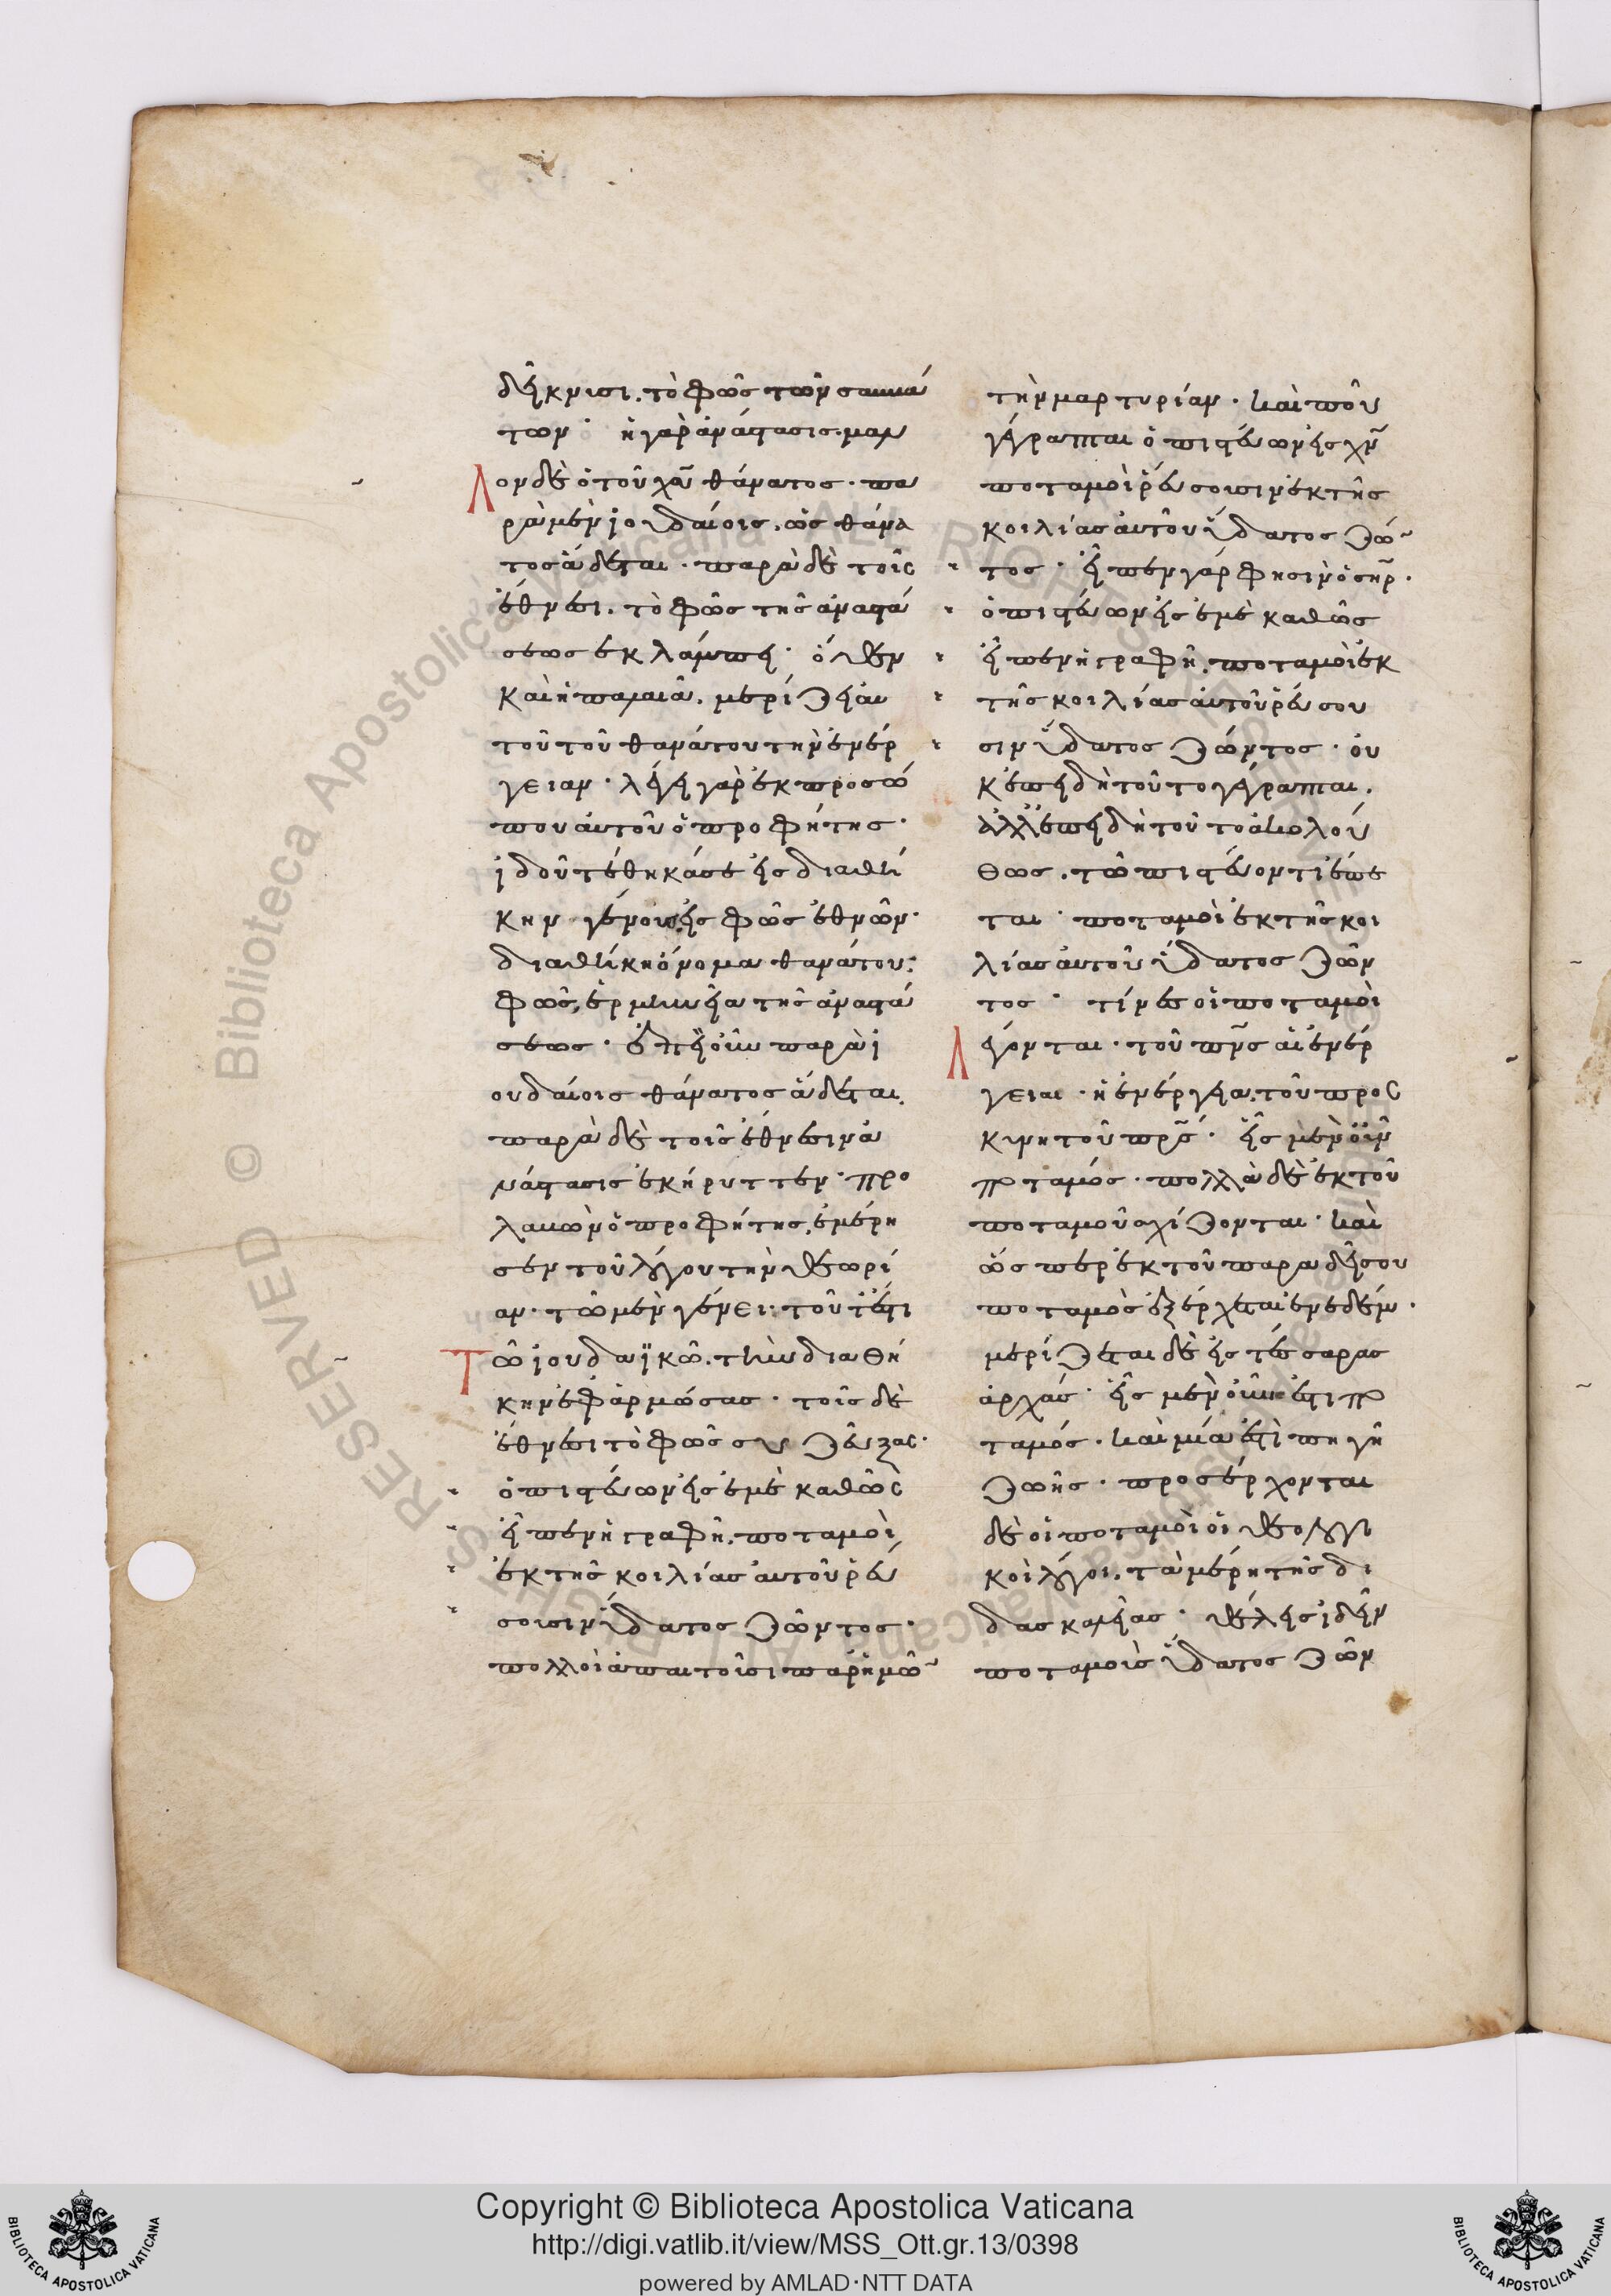 δείκνυσι. τὸ φῶς τῶν σαμμά
των· ἡ γὰρ ἀνάστασις. μαλ
Λον δὲ ὁ τοῦ χυ θάνατος· πα
ρὰ μὲν ἰουδαίοις. ὡς θάνα
τος ἄδεται· παρὰ δὲ τοῖς
ἔθνεσι. τὸ φῶς τῆς ἀναστά
σεως ἐκλάμπει· ὅθεν
καὶ ἡσαΐας, μερίζει αὐ
τοῦ τοῦ θανάτου τὴν ἐνέρ
γειαν· λέγει γὰρ ἐκ προσώ
που αὐτοῦ ὁ προφήτης·
ἰδοὺ τέθηκά σε εἰς διαθή
κην γένους. εἰς φῶς ἐθνῶν·
διαθήκη ὄνομα θανάτου·
φῶς, ἑρμηνεία τῆς ἀναστά
σεως· ἐπεὶ οὖν παρὰ ἰ
ουδαίοις θάνατος ἄδεται.
παρὰ δὲ τοῖς ἔθνεσιν ἀ
νάστασις ἐκήρυττεν· προ
λαβὼν ὁ προφήτης, ἐμέρη
σεν τοῦ λόγου τὴν θεωρί
αν· τῷ μὲν γένει· τουτέστι
Τῷ ἰουδαϊκῷ. τὴν διαθή
κην ἐφαρμόσας· τοῖς δὲ
ἔθνεσι τὸ φῶς συζεύξας·
ὁ πιστεύων εἰς ἐμὲ καθὼς
εἶπεν ἡ γραφὴ. ποταμοὶ
ἐκ τῆς κοιλίας αὐτοῦ ῥεύ
σουσιν ὕδατος ζῶντος·
πολλοὶ ἀπαιτοῦσι παρ' ἡμῶ
τὴν μαρτυρίαν· καὶ ποῦ
γέγραπται ὁ πιστεύων εἰς χν
ποταμοὶ ῥεύσουσιν ἐκ τῆς
κοιλίας αὐτοῦ ὕδατος ζῶ
τος· εἶπεν γάρ φησιν ὁ σηρ·
ὁ πιστεύων εἰς ἐμὲ καθὼς
εἶπεν ἡ γραφὴ, ποταμοὶ ἐκ
τῆς κοιλίας αὐτοῦ ῥεύσου
σιν ὕδατος ζῶντος· οὐ
κ ἐπειδὴ τοῦτο γέγραπται.
ἀλλ' ἐπειδὴ τοῦτο ἀκολού
θως. τῷ πιστεύοντι ἕπε
ται· ποταμοὶ ἐκ τῆς κοι
λίας αὐτοῦ ὕδατος ζῶν
τος· τίνες οἱ ποταμοὶ
Λέγονται· τοῦ πνς αἱ ἐνέρ
γειαι· ἡ ἐνέργεια. τοῦ προς
κυνητοῦ πνς· εἷς μὲν οὖν
ποταμός· πολλὰ δὲ ἐκ τοῦ
ποταμοῦ σχίζονται· καὶ
ὥσπερ ἐκ τοῦ παραδείσου
ποταμὸς ἐξέρχεται ἐν ἐδέμ·
μερίζεται δὲ εἰς τέσσαρας
ἀρχάς· εἷς μὲν οὖν ἐστι πο
ταμός· καὶ μία ἐστὶ πηγὴ
ζωῆς· προσέρχονται
δὲ οἱ ποταμοὶ οἱ θεολογι
κοὶ λόγοι. τὰ μέρη τῆς δι
δασκαλίας· θέλεις ἰδεῖν
ποταμοὺς ὕδατος ζῶν
Copyright © Biblioteca Apostolica Vaticana
http://digi.vatlib.it/view/MSS_Ott.gr.13/0398
powered by AMLAD·NTT DATA